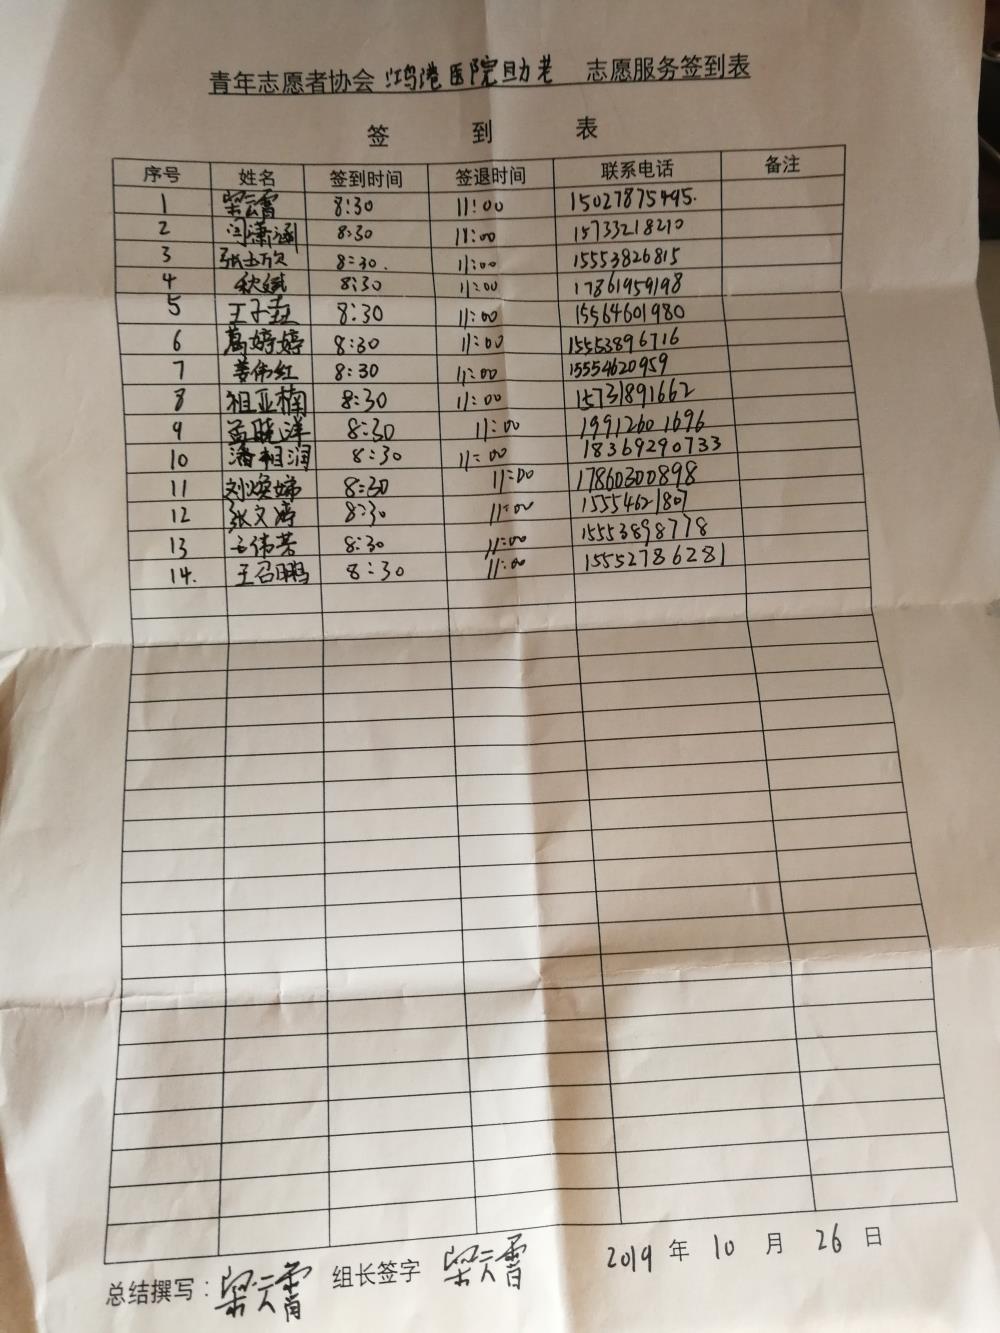 青年志愿者协会 鸿港医院助老 志愿服务签到表
签 到 表
序号 姓名 签到时间 签退时间 联系电话 备注
1 梁云霄 8:30 11:00 15027875495.
2 闫潇涵 8:30 11:00 15733218210
3 张士欣 8:30. 11:00 15553826815
4 秋斌 8:30 11:00 17861959198
5 王子垚 8:30 11:00 15564601980
6 葛婷婷 8:30 11:00 15553896716
7 姜伟红 8:30 11:00 15554620959
8 祖亚楠 8:30 11:00 15731891662
9 孟晓洋 8:30 11:00 19912601696
10 潘相润 8:30 11:00 18369290733
11 刘焕娣 8:30 11:00 17860300898
12 张文涛 8:30 11:00 15554621807
13 伟芳 8:30 11:00 15553898778
14. 王召鹏 8:30 11:00 15552786281
总结撰写：梁云霄 组长签字 梁云霄 2019 年 10 月 26 日